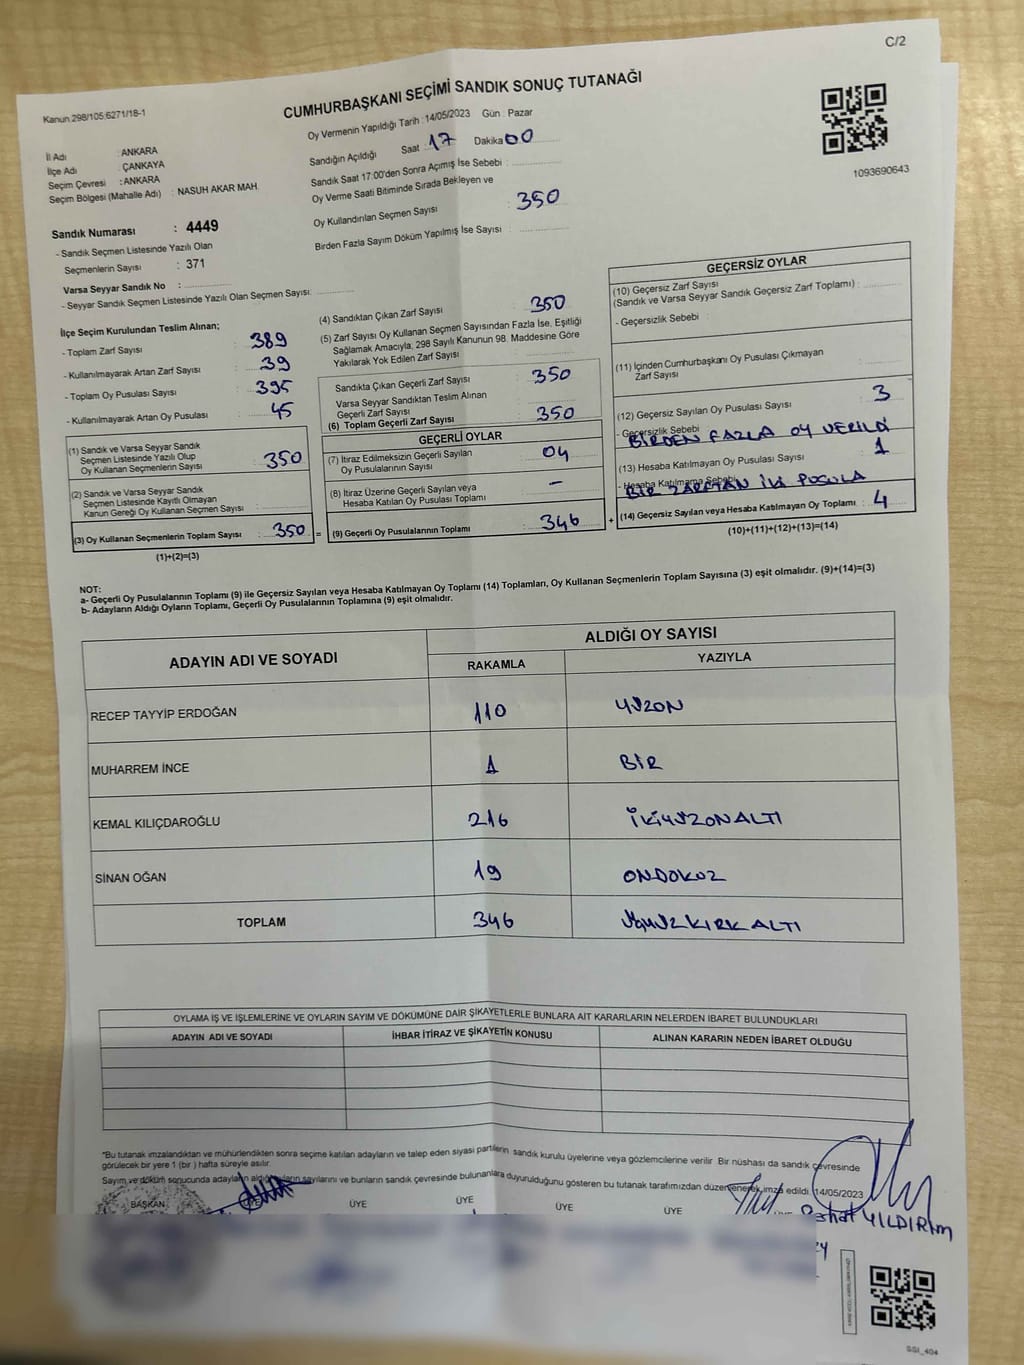 C/2
Kanun 298/105 6271/18-1
CUMHURBAŞKANI SEÇİMİ SANDIK SONUÇ TUTANAĞI
Oy Vermenin Yapıldığı Tarih : 14/05/2023 Gün : Pazar
İl Adı : ANKARA
İlçe Adı : ÇANKAYA
Seçim Çevresi : ANKARA
Seçim Bölgesi (Mahalle Adı) : NASUH AKAR MAH
Sandığın Açıldığı Saat 17 Dakika 00
Sandık Saat 17:00'den Sonra Açımış İse Sebebi :
Oy Verme Saati Bitiminde Sırada Bekleyen ve
Oy Kullandırılan Seçmen Sayısı : 350
Birden Fazla Sayım Döküm Yapılmış İse Sayısı :
1093690643
Sandık Numarası : 4449
- Sandık Seçmen Listesinde Yazılı Olan
Seçmenlerin Sayısı : 371
Varsa Seyyar Sandık No :
- Seyyar Sandık Seçmen Listesinde Yazılı Olan Seçmen Sayısı:
İlçe Seçim Kurulundan Teslim Alınan;
- Toplam Zarf Sayısı : 389
- Kullanılmayarak Artan Zarf Sayısı : 39
- Toplam Oy Pusulası Sayısı : 395
- Kullanılmayarak Artan Oy Pusulası : 45
(1) Sandık ve Varsa Seyyar Sandık
Seçmen Listesinde Yazılı Olup
Oy Kullanan Seçmenlerin Sayısı : 350
(2) Sandık ve Varsa Seyyar Sandık
Seçmen Listesinde Kayıtlı Olmayan
Kanun Gereği Oy Kullanan Seçmen Sayısı :
(3) Oy Kullanan Seçmenlerin Toplam Sayısı : 350 =
(1)+(2)=(3)
(4) Sandıktan Çıkan Zarf Sayısı : 350
(5) Zarf Sayısı Oy Kullanan Seçmen Sayısından Fazla İse, Eşitliği
Sağlamak Amacıyla; 298 Sayılı Kanunun 98. Maddesine Göre
Yakılarak Yok Edilen Zarf Sayısı :
Sandıkta Çıkan Geçerli Zarf Sayısı : 350
Varsa Seyyar Sandıktan Teslim Alınan
Geçerli Zarf Sayısı :
(6) Toplam Geçerli Zarf Sayısı : 350
GEÇERLİ OYLAR
(7) İtiraz Edilmeksizin Geçerli Sayılan
Oy Pusulalarının Sayısı : 04
(8) İtiraz Üzerine Geçerli Sayılan veya
Hesaba Katılan Oy Pusulası Toplamı : —
(9) Geçerli Oy Pusulalarının Toplamı : 346 +
GEÇERSİZ OYLAR
(10) Geçersiz Zarf Sayısı
(Sandık ve Varsa Seyyar Sandık Geçersiz Zarf Toplamı) :
- Geçersizlik Sebebi :
(11) İçinden Cumhurbaşkanı Oy Pusulası Çıkmayan
Zarf Sayısı :
(12) Geçersiz Sayılan Oy Pusulası Sayısı : 3
- Geçersizlik Sebebi
BİRDEN FAZLA OY VERİLDİ
(13) Hesaba Katılmayan Oy Pusulası Sayısı : 1
- Hesaba Katılmama Sebebi
BİR ZARFTAN İKİ PUSULA
(14) Geçersiz Sayılan veya Hesaba Katılmayan Oy Toplamı : 4
(10)+(11)+(12)+(13)=(14)
NOT:
a- Geçerli Oy Pusulalarının Toplamı (9) ile Geçersiz Sayılan veya Hesaba Katılmayan Oy Toplamı (14) Toplamları, Oy Kullanan Seçmenlerin Toplam Sayısına (3) eşit olmalıdır. (9)+(14)=(3)
b- Adayların Aldığı Oyların Toplamı, Geçerli Oy Pusulalarının Toplamına (9) eşit olmalıdır.
ADAYIN ADI VE SOYADI
ALDIĞI OY SAYISI
RAKAMLA YAZIYLA
RECEP TAYYİP ERDOĞAN 110 YUZON
MUHARREM İNCE 1 BİR
KEMAL KILIÇDAROĞLU 216 İKİYUZONALTI
SİNAN OĞAN 19 ONDOKUZ
TOPLAM 346 ÜÇYUZKIRKALTI
OYLAMA İŞ VE İŞLEMLERİNE VE OYLARIN SAYIM VE DÖKÜMÜNE DAİR ŞİKAYETLERLE BUNLARA AİT KARARLARIN NELERDEN İBARET BULUNDUKLARI
ADAYIN ADI VE SOYADI İHBAR İTİRAZ VE ŞİKAYETİN KONUSU ALINAN KARARIN NEDEN İBARET OLDUĞU
*Bu tutanak imzalandıktan ve mühürlendikten sonra seçime katılan adayların ve talep eden siyasi partilerin sandık kurulu üyelerine veya gözlemcilerine verilir. Bir nüshası da sandık çevresinde
görülecek bir yere 1 (bir) hafta süreyle asılır.
Sayım ve döküm sonucunda adayların aldığı oyların sayılarını ve bunların sandık çevresinde bulunanlara duyurulduğunu gösteren bu tutanak tarafımızdan düzenlenerek imza edildi. 14/05/2023
BAŞKAN ÜYE ÜYE ÜYE ÜYE ÜYE
YILDIRIM
SSI_404